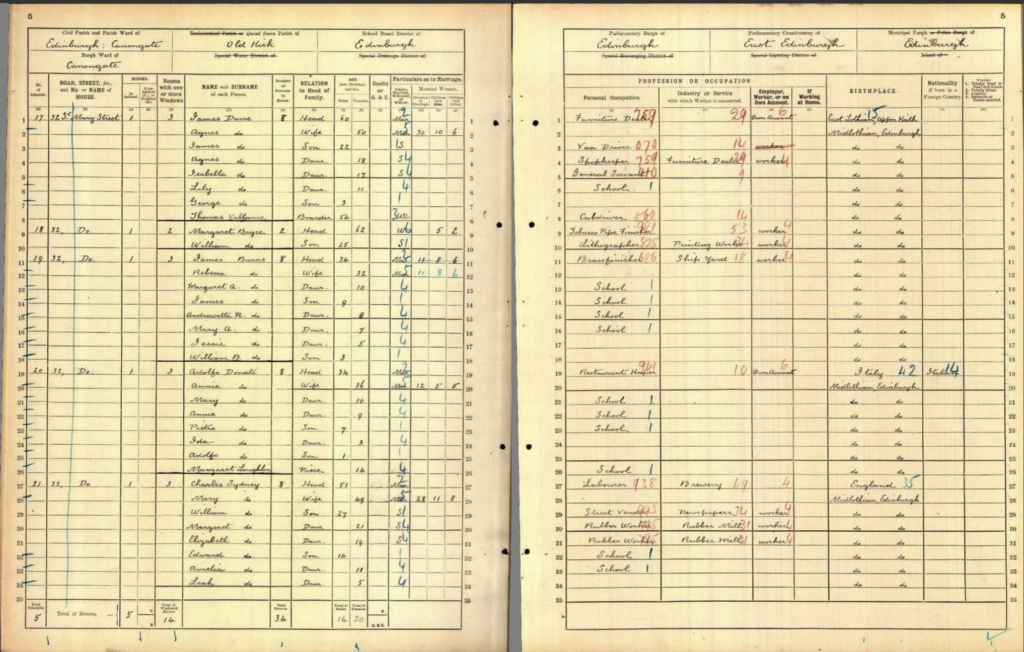 5
Civil Parish and Parish Ward of
Edinburgh: Canongate
Burgh Ward of
Canongate
Ecclesiastical or Quoad Sacra Parish of
Old Kirk
Special Water District of
School Board District of
Edinburgh
Special Drainage District of
No. of Schedule. ROAD, STREET, &c., and No. or NAME of HOUSE. HOUSES. Rooms with one or more Windows. NAME and SURNAME of each Person. Number of Persons in House. RELATION to Head of Family. AGE Gaelic or G. & E. Particulars as to Marriage.
Married Women.
1 17 32 St Mary Street 1 3 James Dawe 8 Head 60
2 Agnes do Wife 50 30 10 6
3 James do Son 22 S
4 Agnes do Daur. 18 S
5 Isabella do Daur. 17 S
6 Lily do Daur. 11
7 George do Son 3
8 Thomas Boarder 54
9 18 32, Do. 1 2 Margaret Bryce 2 Head 62 5 2
10 William do Son 25 S
11 19 32, Do. 1 3 James Burns 8 Head 34 11 8 6
12 Rebecca do Wife 32 11 8 6
13 Margaret A. do Daur. 10
14 James do Son 9
15 do Daur. 8
16 Mary A. do Daur. 7
17 Jessie do Daur. 5
18 William B. do Son 3
19 20 32, Do. 1 3 Adolfo Donati 8 Head 34
20 Annie do Wife 36 12 5 5
21 Mary do Daur 10
22 Annie do Daur 9
23 Pietro do Son 7
24 Ida do Daur. 3
25 Adolfo do Son 1
26 Margaret Loughlin Niece 14
27 21 32, Do 1 3 Charles Sydney 8 Head 51
28 Mary do Wife 49 28 11 8
29 William do Son 27 S
30 Margaret do Daur 21 S
31 Elizabeth do Daur. 19 S
32 Edward do Son 14
33 Amelia do Daur 11
34 Leah do Daur 5
35
Total Schedules. 5 Total of Houses, 5 Total of Windowed Rooms. 14 Total Persons. 34 Total of Males. 14 Total of Females. 20
5
Parliamentary Burgh of
Edinburgh
Special Scavenging District of
Parliamentary Constituency of
East Edinburgh
Special Lighting District of
Municipal Burgh or Police Burgh of
Edinburgh
PROFESSION OR OCCUPATION. BIRTHPLACE Nationality if born in a Foreign Country.
Personal Occupation. Industry or Service with which Worker is connected. Employer, Worker, or on Own Account. If Working at Home.
1 Furniture Dealer 759 29 Own Account 6 East Lothian, Upper Keith 15
2 Midlothian, Edinburgh
3 Van Driver 070 14 worker do do
4 Shopkeeper 759 Furniture Dealer 29 worker 4 do do
5 General Servant 9 do do
6 School 1 do do
7 do do
8 Cabdriver 14 do do
9 Tobacco Pipe Finisher 53 worker 4 do do
10 Lithographer Printing Works worker 4 do do
11 Brassfinisher 686 Ship Yard 18 worker 4 do do
12 do do
13 School 1 do do
14 School 1 do do
15 School 1 do do
16 School 1 do do
17 do do
18 do do
19 Restaurant Keeper 10 Own Account 6 Italy 42 Italian 14
20 Midlothian, Edinburgh
21 School 1 do do
22 School 1 do do
23 School 1 do do
24 do do
25 do do
26 School 1 do do
27 Labourer 938 Brewery 49 4 England 35
28 Midlothian, Edinburgh
29 Street Vendor Newspapers worker 4 do do
30 Rubber Worker Rubber Mill worker 4 do do
31 Rubber Worker Rubber Mill worker 4 do do
32 School 1 do do
33 School 1 do do
34 do do
35